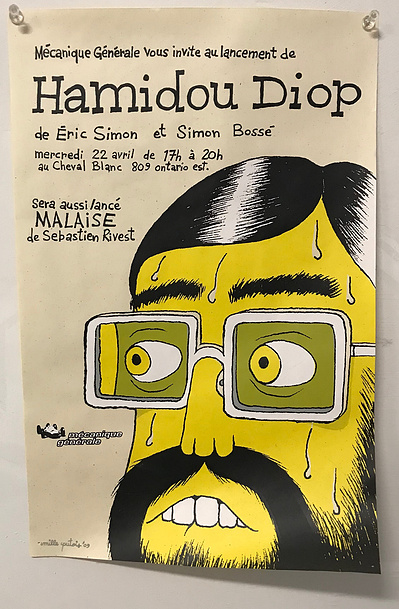 Mécanique Générale vous invite au lancement de
Hamidou Diop
de Éric Simon et Simon Bossé
mercredi 22 avril de 17h à 20h
au Cheval Blanc 809 ontario est.
Sera aussi lancé
MALAiSE
de Sébastien Rivest
mécanique
générale